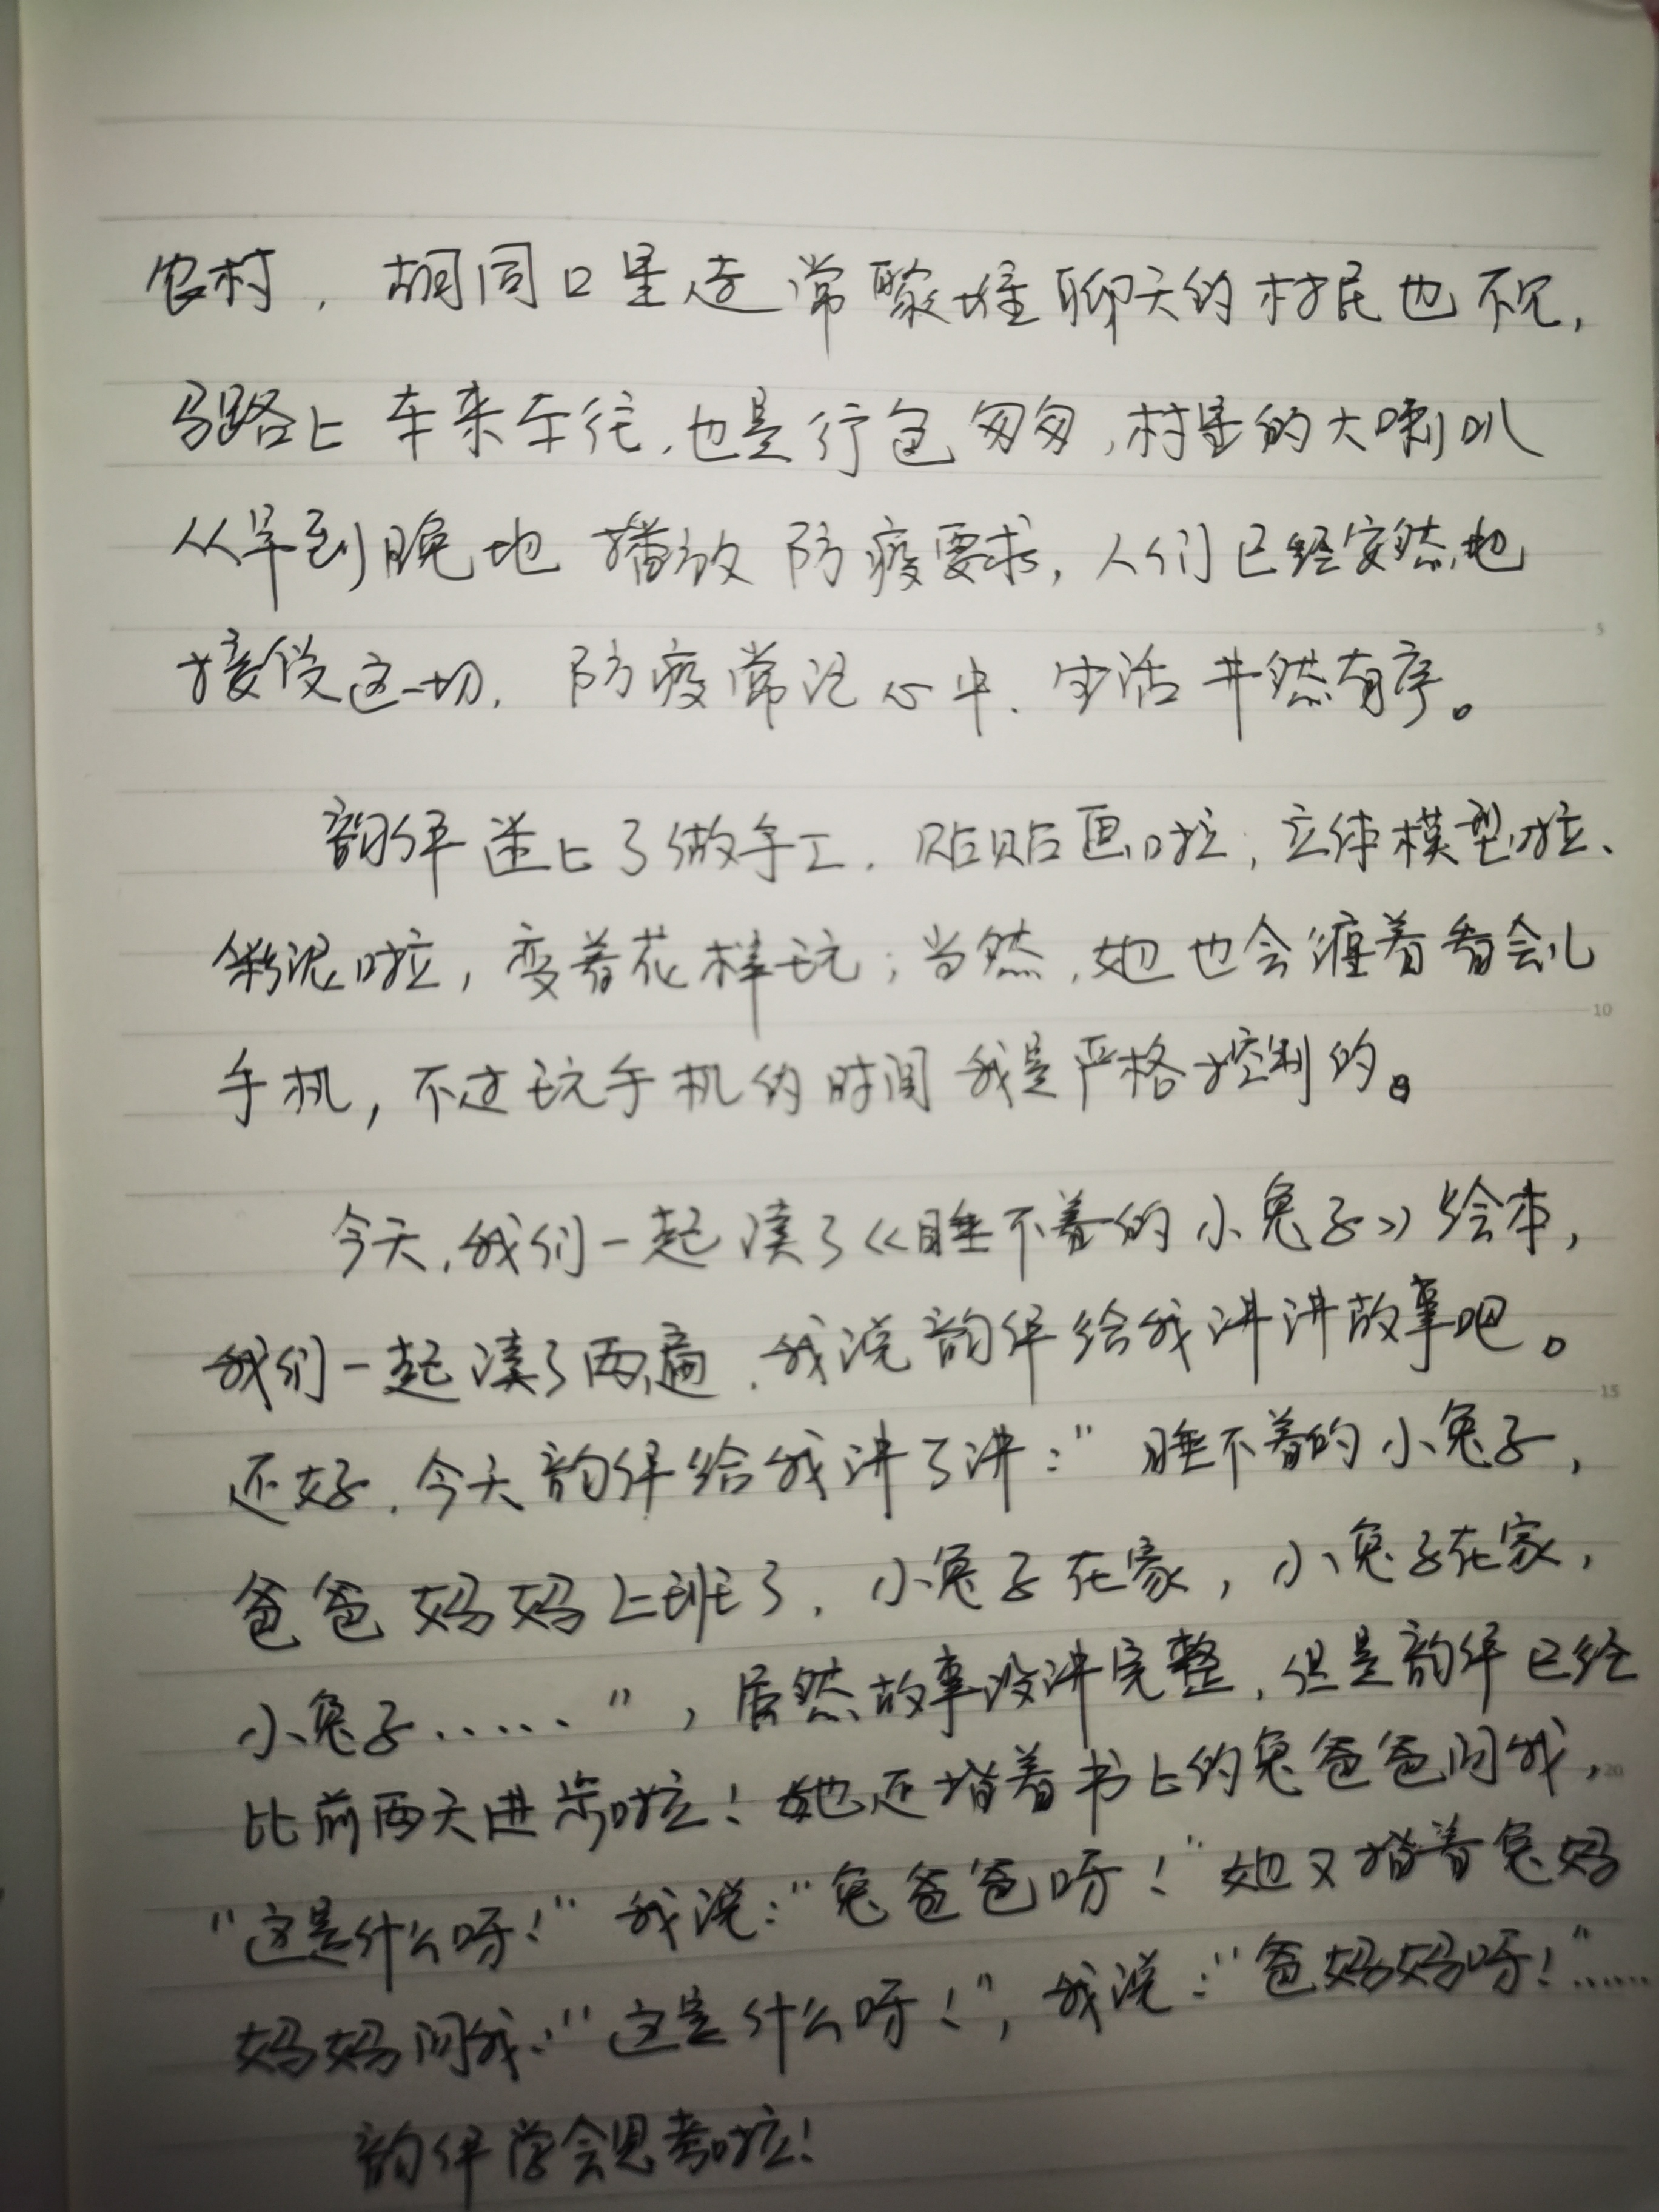 农村，胡同口里连常聚堆聊天的村民也不见，
马路上车来车往，也是行色匆匆，村里的大喇叭
从早到晚地播放防疫要求，人们已经安然地
接受这一切，防疫常记心中、生活井然有序。
韵伊迷上了做手工，贴贴画啦，立体模型啦、
彩泥啦，变着花样玩；当然，她也会缠着看会儿
手机，不过玩手机的时间我是严格控制的。
今天，我们一起读了《睡不着的小兔子》绘本，
我们一起读了两遍，我说韵伊给我讲讲故事吧。
还好，今天韵伊给我讲了讲："睡不着的小兔子，
爸爸妈妈上班了，小兔子在家，小兔子在家，
小兔子......"，虽然故事没讲完整，但是韵伊已经
比前两天进步啦！她还指着书上的兔爸爸问我，
"这是什么呀！"我说："兔爸爸呀！"她又指着兔妈
妈妈问我："这是什么呀！"，我说："爸妈妈呀！"......
韵伊学会思考啦！
5
10
15
20